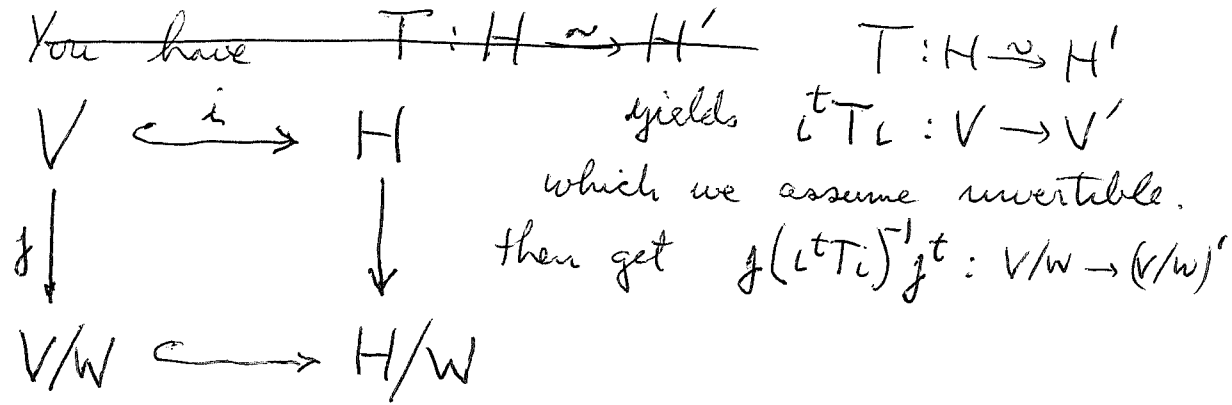 You have T : H ⥲ H′
T : H ⥲ H′
V ↪ H
i
yields iᵗTi : V → V′
which we assume invertible.
j
then get j(iᵗTi)⁻¹jᵗ : V/W → (V/W)′
V/W ↪ H/W